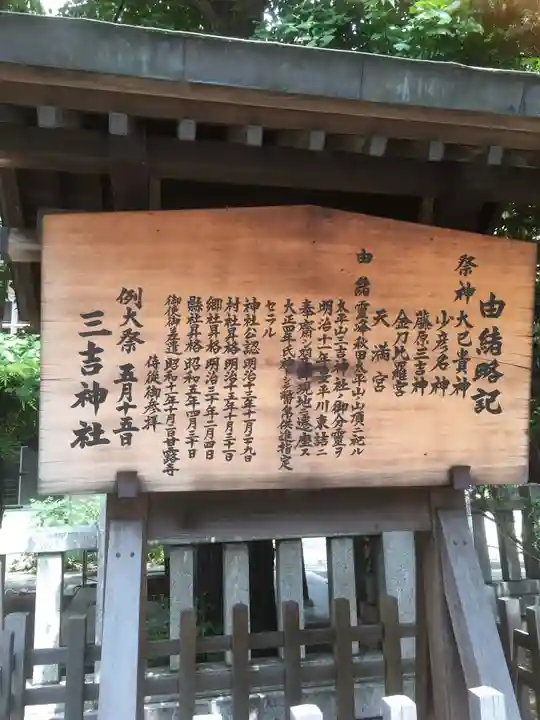 由緒略記
祭神 大己貴神
少彦名神
藤原三吉神
金刀比羅宮
天満宮
由緒 霊峰秋田太平山山頂ニ祀ル
太平山三吉神社ノ御分霊ヲ
明治十一年 平川東詰ニ
奉斎シ 地ニ遷座ス
大正四年氏 シ特 保護指定
セラル
神社公認 明治十三年十月二十九日
村社昇格 明治十五年十月三十一日
郷社昇格 明治三十年二月四日
縣社昇格 昭和五年四月三十日
御使御差遣 昭和十一年十月二日甘露寺
侍従御参拝
例大祭 五月十五日
三吉神社